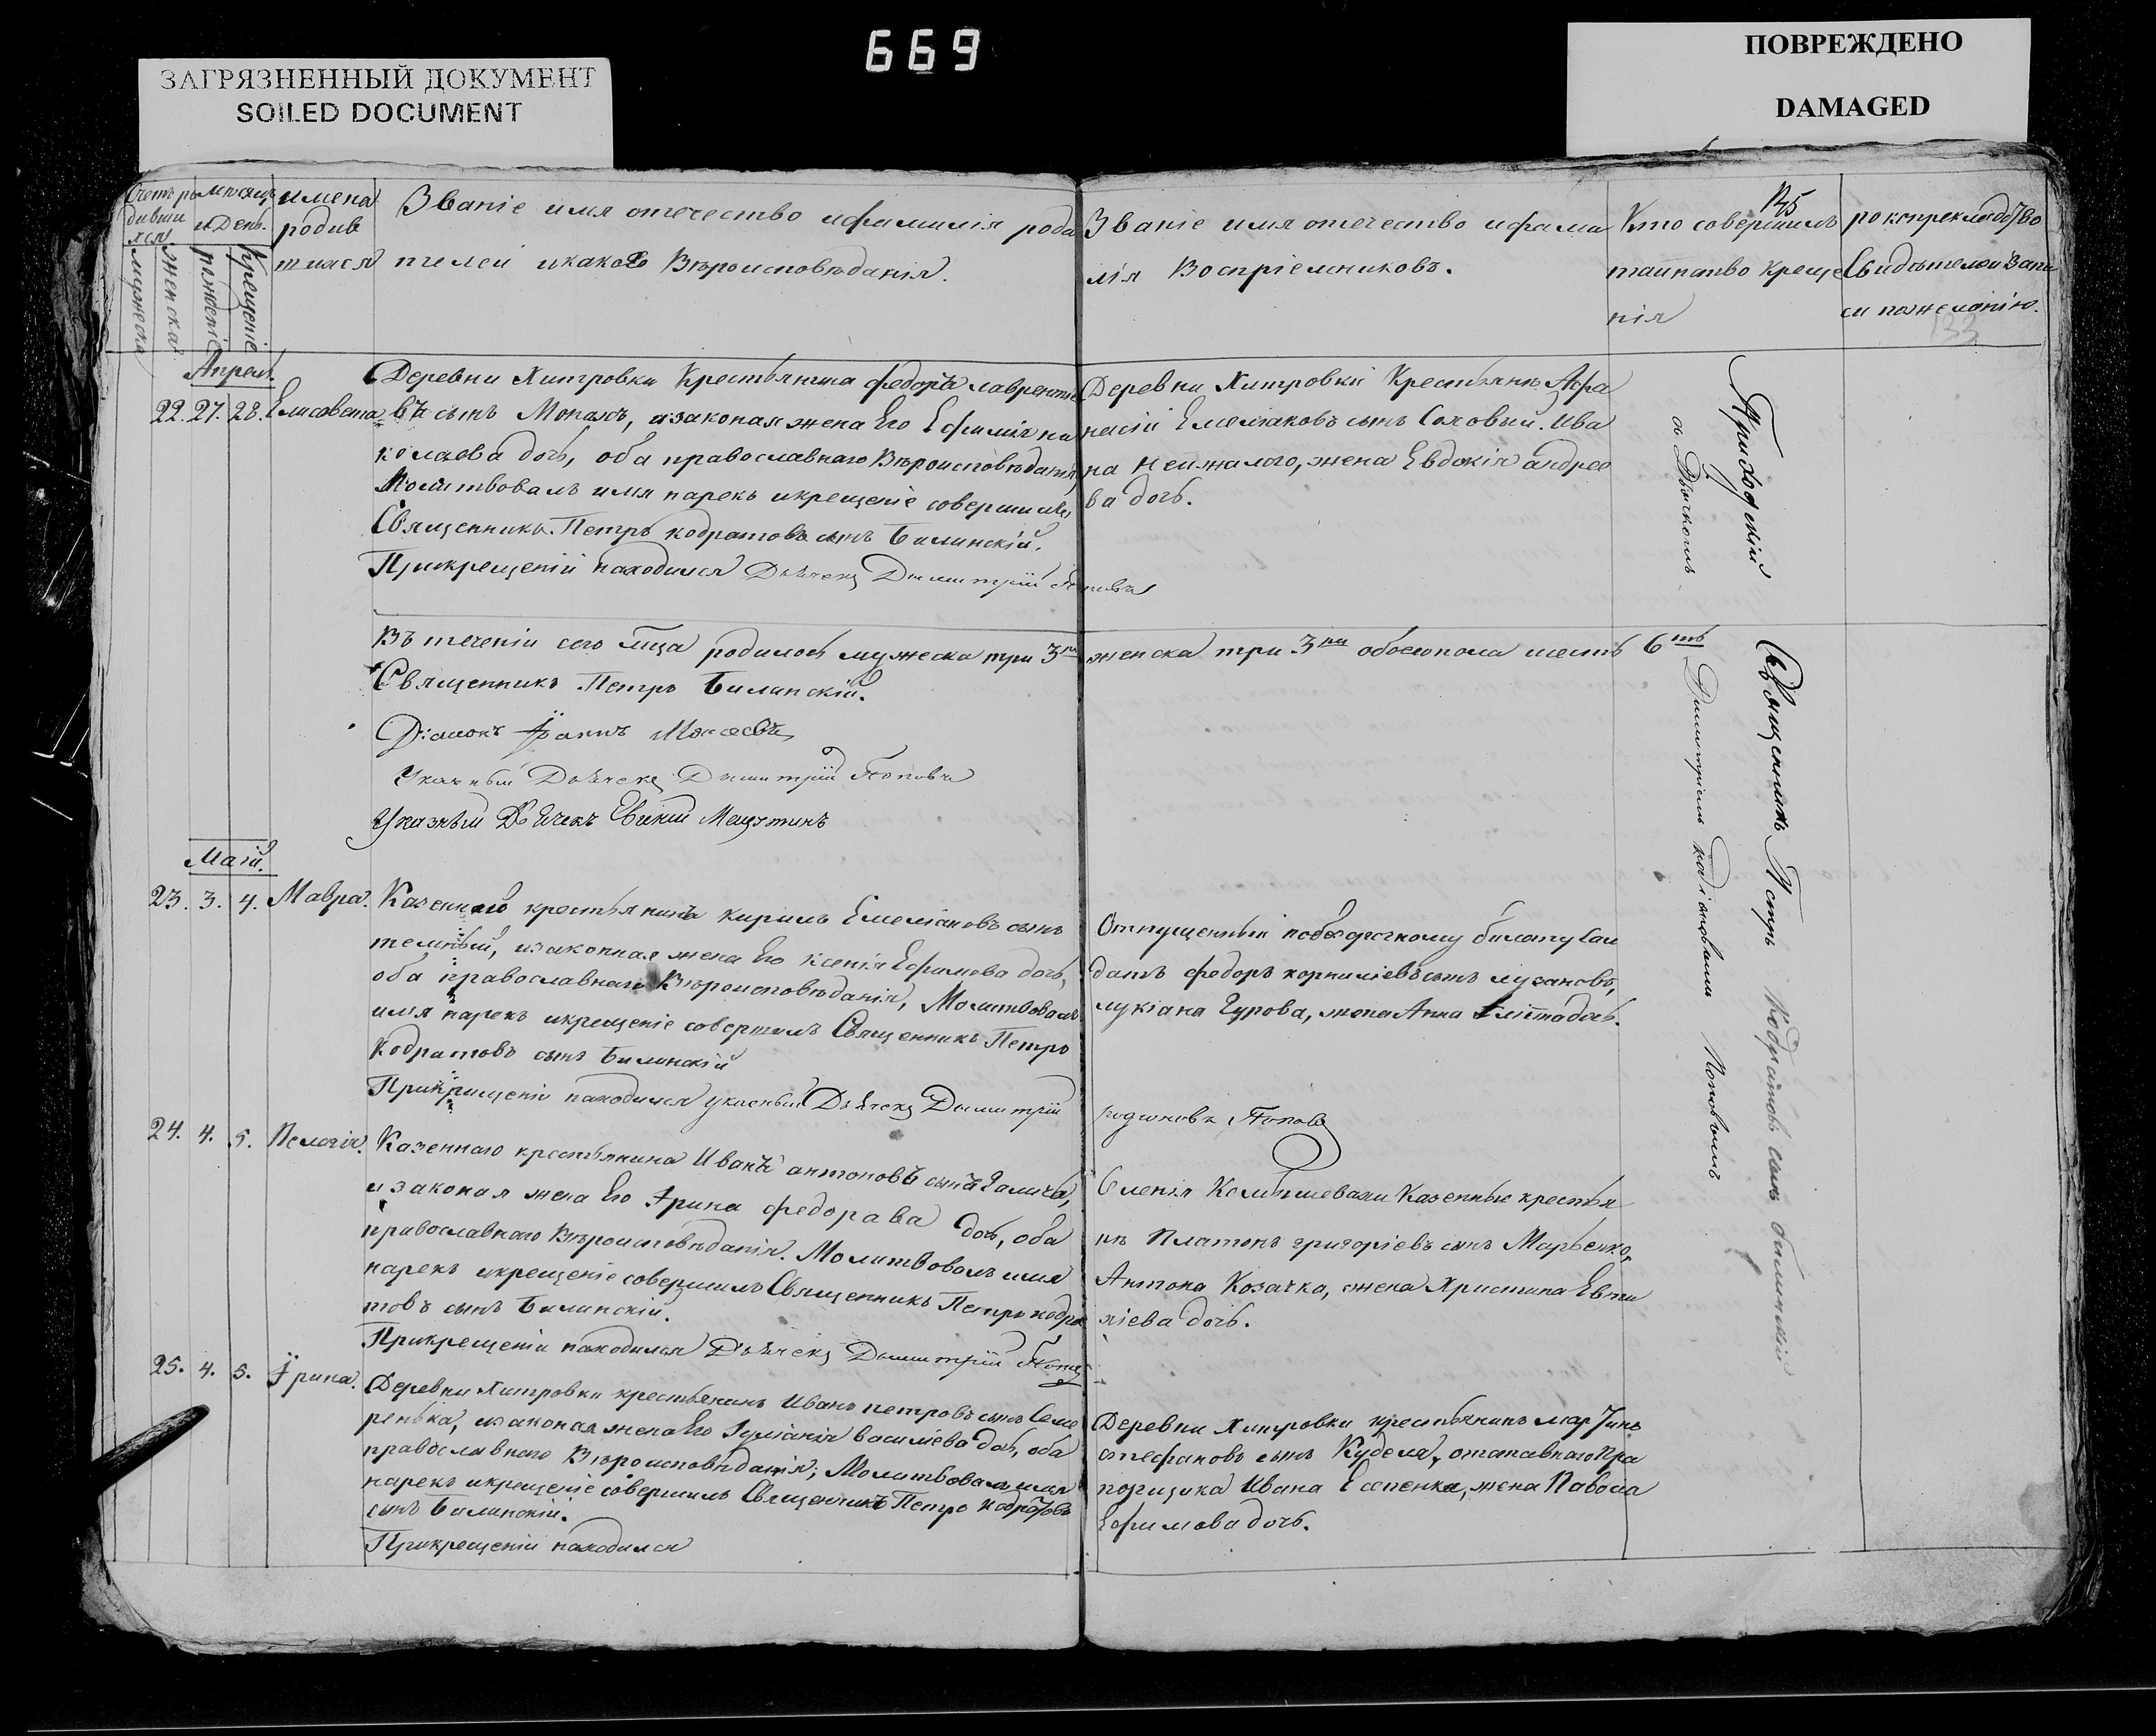 669
ЗАГРЯЗНЕННЫЙ ДОКУМЕНТ
SOILED DOCUMENT
ПОВРЕЖДЕНО
DAMAGED
Счетъ ро
дивши
хся.
мужеска
женска
мѣсяцъ
и День.
рожденіе
Крещеніе
имена
родив
шихся
Званіе имя отечество ифамилія роди
телей икакого Вѣроисповѣданія.
Званіе имя отечество ифами
лія Воспріемниковъ.
Кто совершилъ
таинство креще
нія
Свидѣтелей запи
си пожеланію.
133
Апрель.
22. 27. 28. Елисавета
Деревни Хитровки Крестьянина федора лавренті
въ сынъ Монахъ, изаконая жена Его Ефимія ни
колаева дочь, оба православнаго Вѣроисповѣданія,
Молитвовалъ имя нарекъ икрещеніе совершилъ
Священникъ Петръ кодратовъ сынъ Билинскій.
Прикрещеніи находился Дьячекъ Димитрій Поповъ
Деревни Хитровки Крестьянъ Афа
насій Емеліановъ сынъ Соловый. Ива
на Неижмалого, жена Евдокія андрее
ва дочь.
Въ теченіи сего мца родилось мужеска три 3ри
женска три 3ри обоегопола шесть 6ть
Священникъ Петръ Билинскій.
Діаконъ Іоаннъ Моисеевъ
Указный Дьячекъ Димитрій Поповъ
Указный Дьячекъ Евфимій
Приходскій Священникъ Петръ Кодратовъ сынъ билинскій
съ Дьячкомъ Димитріемъ Родіоновымъ Поповымъ
Маій.
23. 3. 4. Мавра.
Казенного крестьянина кирилъ Емеліановъ сынъ
темный, изаконная жена Его ксенія Ефимова дочь,
оба православнаго Вѣроисповѣданія, Молитвовалъ
имя нарекъ икрещеніе совершилъ Священникъ Петръ
Кодратовъ сынъ Билинскій
Прикрещеніи находился указный Дьячекъ Димитрій
родионовъ Поповъ
Отпущенный по билету Сол
датъ федоръ корниліевъ сынъ лузановъ,
лукіана Гурова, жена Анна дочь.
24. 4. 5. Пелагія.
Казеннаго крестьянина Иванъ антоновъ сынъ Галича,
изаконая жена Его Ирина федорава дочь, оба
православнаго Вѣроисповѣданія. Молитвовалъ имя
нарекъ икрещеніе совершилъ Священникъ Петръ кодра
товъ сынъ Билинскій.
Прикрещеніи находился Дьячекъ Димитрій Поповъ
Казенные крестья
нъ Платонъ григоріевъ сынъ Марченко,
Антона Козачка, жена Христина Евти
хіева дочь.
25. 4. 5. Ирина.
Деревни Хитровки крестьянинъ Иванъ петровъ сынъ Семе
ренька, изаконая жена Его Іуліанія василіева дочь, оба
православнаго Вѣроисповѣданія, Молитвовалъ имя
нарекъ икрещеніе совершилъ Священникъ Петръ Кодратовъ
сынъ Билинскій.
Прикрещеніи находился
Деревни Хитровки крестьянинъ мартинъ
стефановъ сынъ Куделя, отставнаго пра
порщика Ивана Есепенка, жена Павола
Ефимова дочь.